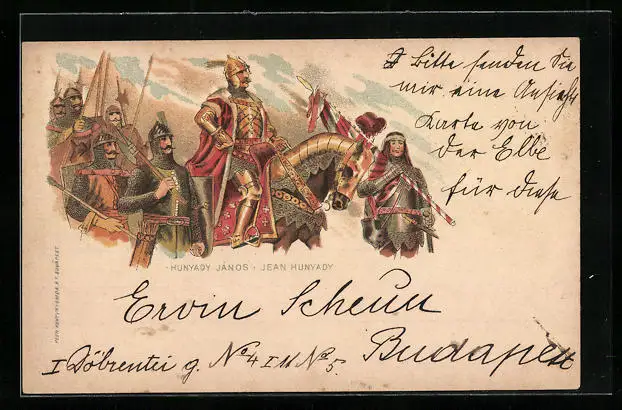 Bitte senden Sie
mir eine Ansichts
Karte von
der Elbe
für diese
HUNYADY JÁNOS · JEAN HUNYADY
Ervin Scheun
Budapest
I Döbrentei g. No 4 I No 5.